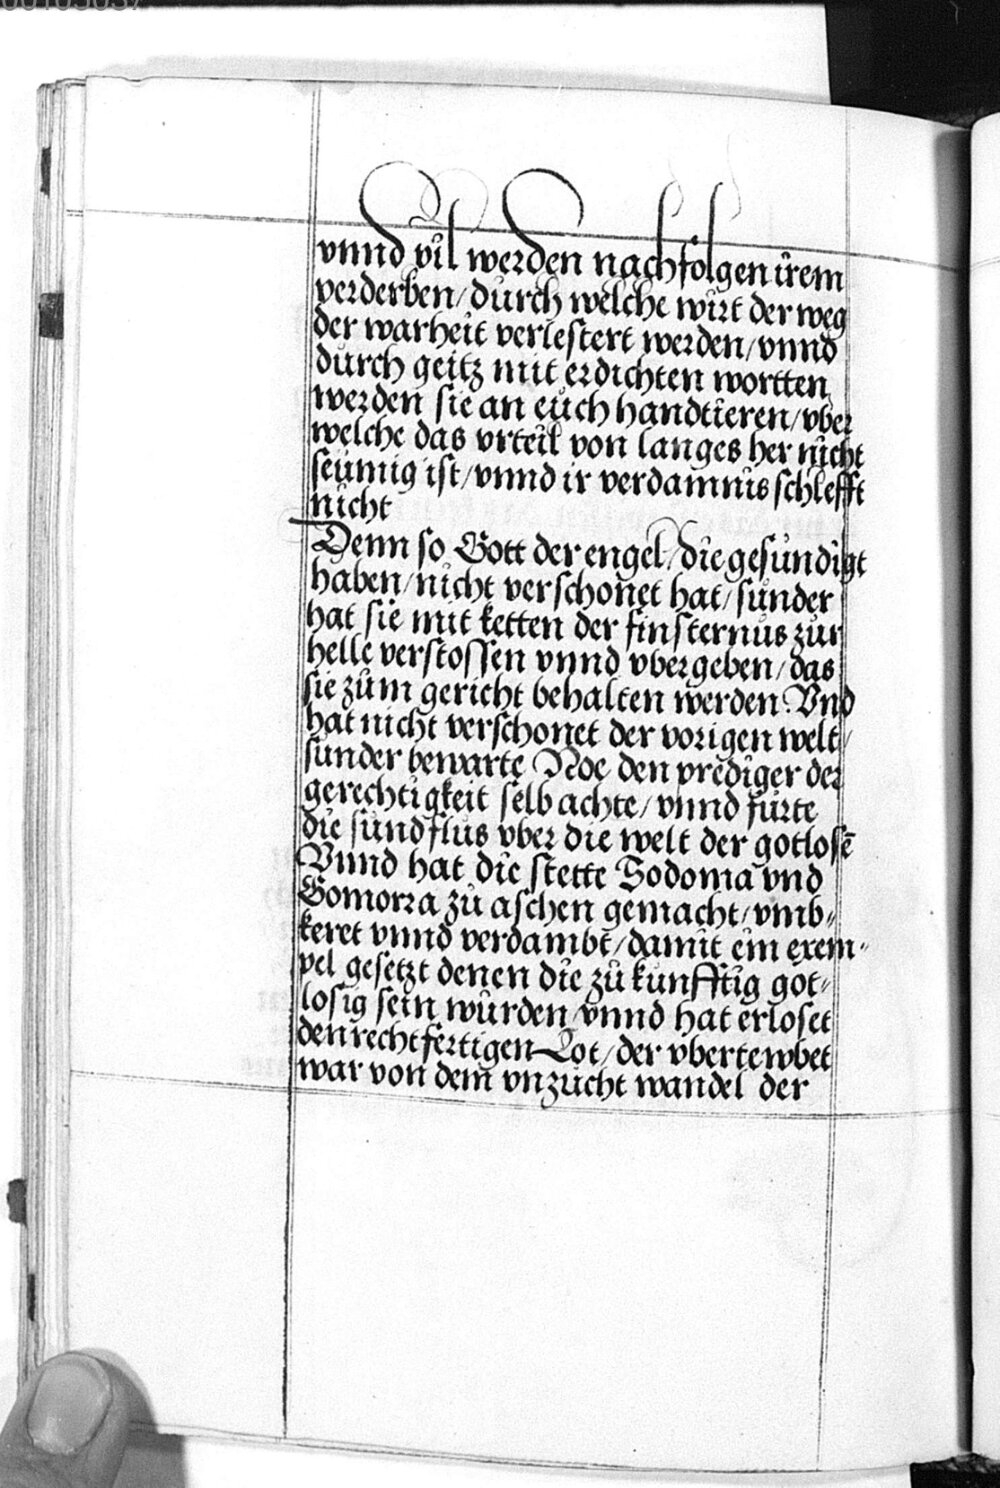 vnnd vil werden nachfolgen irem
verderben/durch welche wirt der weg
der warheit verlestert werden/vnnd
durch geitz mit erdichten wortten
werden sie an euch handtieren/vber
welche das vrteil von langes her nicht
seumig ist/vnnd ir verdamnus schlefft
nicht
Denn so Gott der engel/die gesundigt
haben/nicht verschonet hat/sunder
hat sie mit ketten der finsternus zur
helle verstossen vnnd vbergeben/das
sie zum gericht behalten werden. Vnd
hat nicht verschonet der vorigen welt/
sunder bewarte Noe den prediger der
gerechtigkeit selb achte/vnnd furte
die sundflus vber die welt der gotlosē
Vnnd hat die stette Sodoma vnd
Gomorra zu aschen gemacht/vmb-
keret vnnd verdambt/damit ein exem-
pel gesetzt denen die zukunfftig got-
losig sein wurden/vnnd hat erloset
den rechtfertigen Lot/der vbertewbet
war von dem vnzucht wandel der